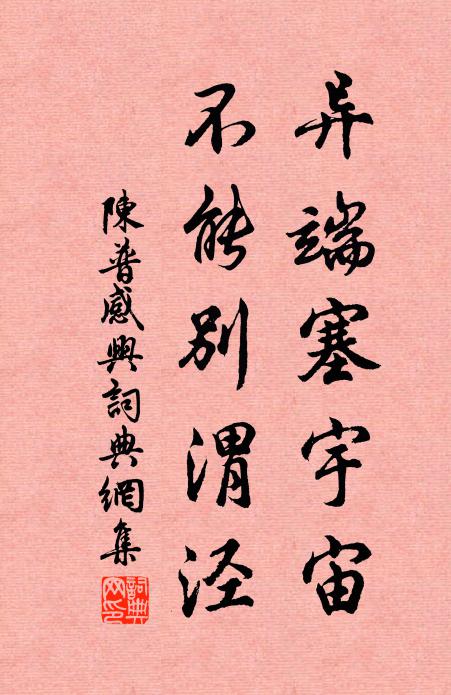 异端塞宇宙
不能别渭泾
陳普感興詞典網集
詞典網印